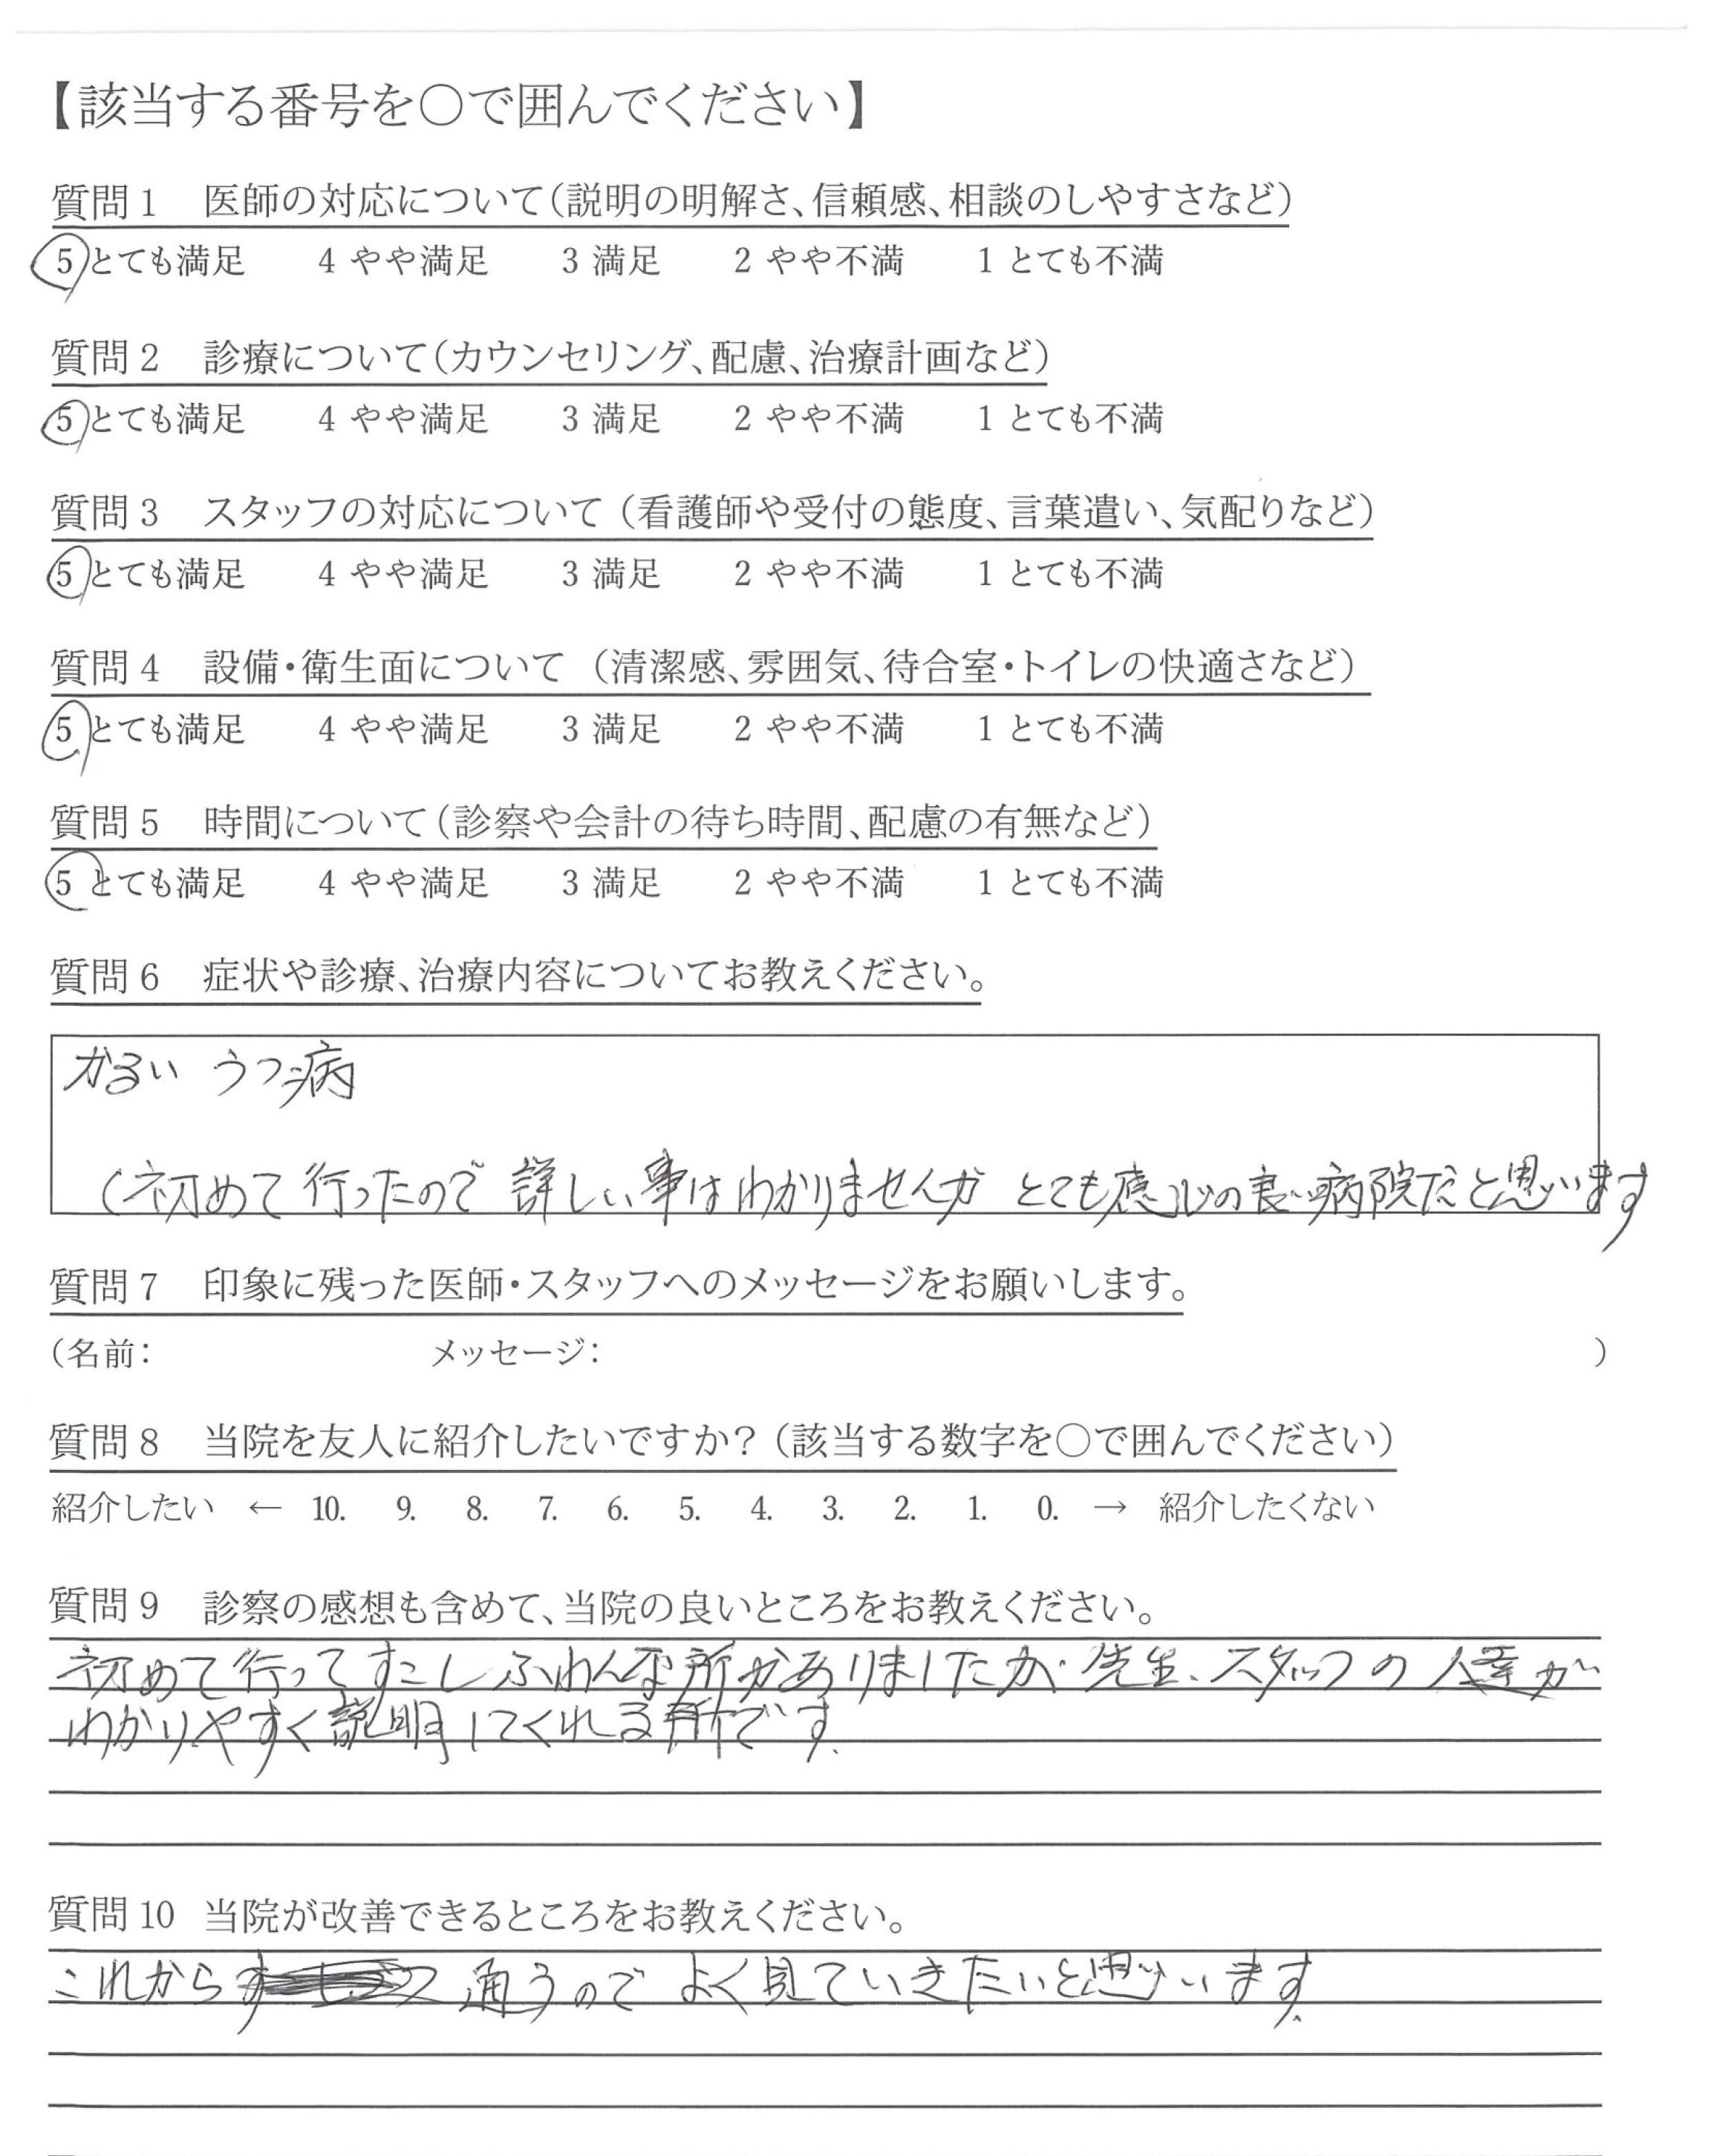 【該当する番号を○で囲んでください】
質問1 医師の対応について(説明の明解さ、信頼感、相談のしやすさなど)
5 とても満足 4 やや満足 3 満足 2 やや不満 1 とても不満
質問2 診療について(カウンセリング、配慮、治療計画など)
5 とても満足 4 やや満足 3 満足 2 やや不満 1 とても不満
質問3 スタッフの対応について(看護師や受付の態度、言葉遣い、気配りなど)
5 とても満足 4 やや満足 3 満足 2 やや不満 1 とても不満
質問4 設備・衛生面について(清潔感、雰囲気、待合室・トイレの快適さなど)
5 とても満足 4 やや満足 3 満足 2 やや不満 1 とても不満
質問5 時間について(診察や会計の待ち時間、配慮の有無など)
5 とても満足 4 やや満足 3 満足 2 やや不満 1 とても不満
質問6 症状や診療、治療内容についてお教えください。
かるい うつ病
(初めて行ったので 詳しい事はわかりませんが とても感じの良い病院だと思います
質問7 印象に残った医師・スタッフへのメッセージをお願いします。
(名前: メッセージ: )
質問8 当院を友人に紹介したいですか?(該当する数字を○で囲んでください)
紹介したい ← 10. 9. 8. 7. 6. 5. 4. 3. 2. 1. 0. → 紹介したくない
質問9 診察の感想も含めて、当院の良いところをお教えください。
初めて行ってすこしふわんな所がありましたが 先生、スタッフの人達が
わかりやすく説明してくれる所です.
質問10 当院が改善できるところをお教えください。
これから 通うので よく見ていきたいと思います.